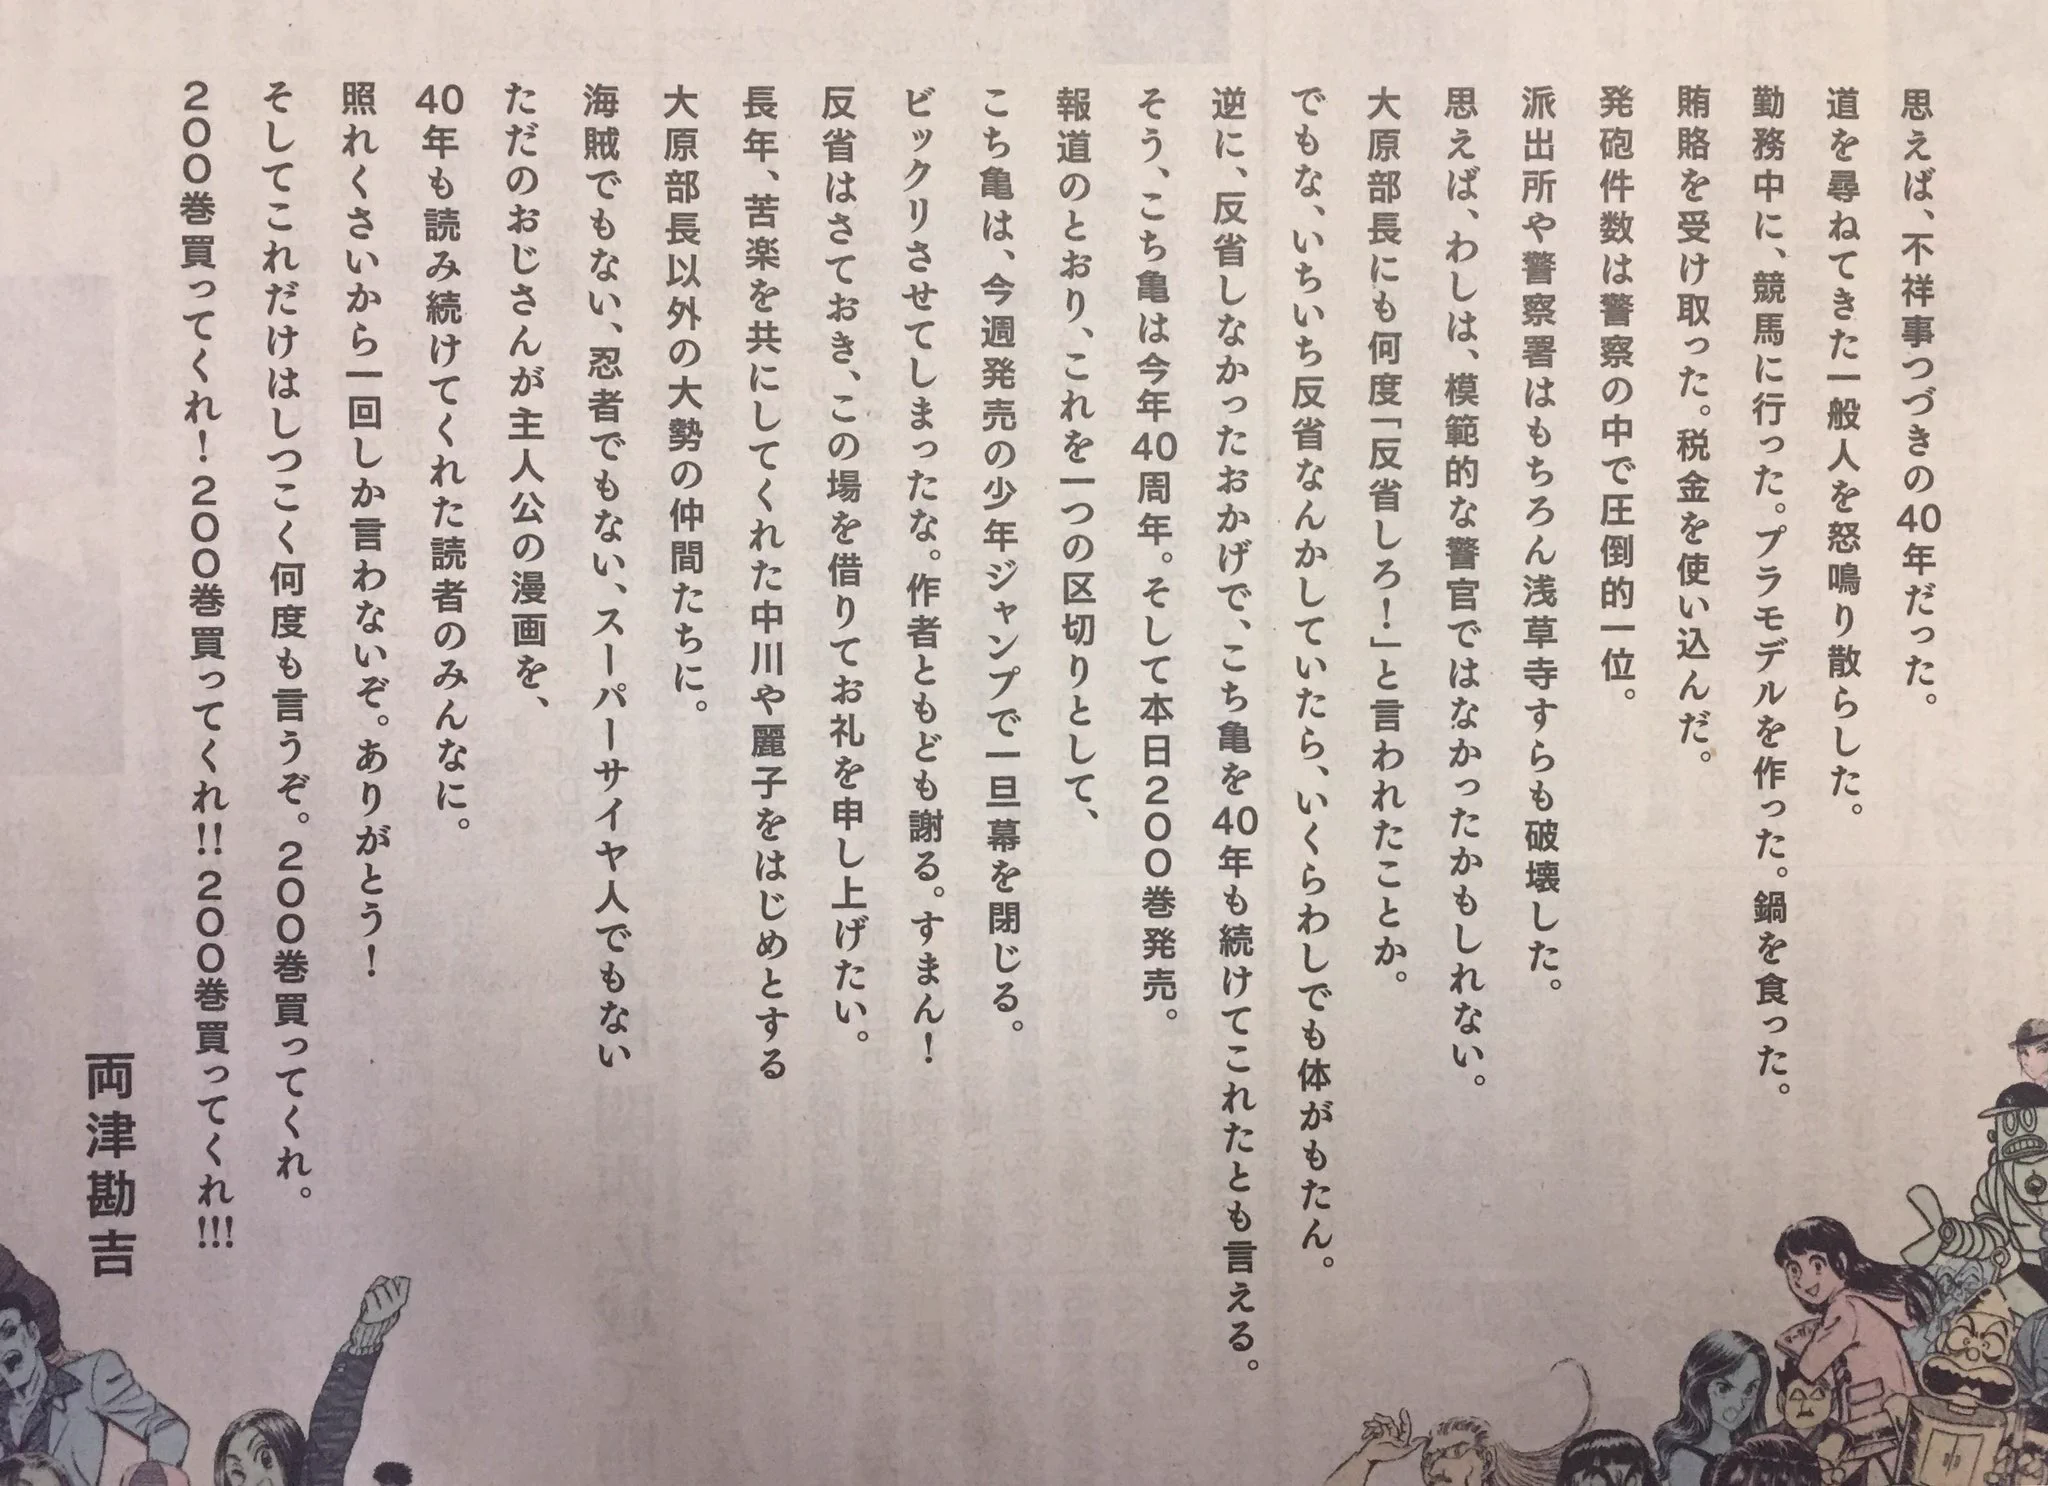 思えば、不祥事つづきの40年だった。
道を尋ねてきた一般人を怒鳴り散らした。
勤務中に、競馬に行った。プラモデルを作った。鍋を食った。
賄賂を受け取った。税金を使い込んだ。
発砲件数は警察の中で圧倒的一位。
派出所や警察署はもちろん浅草寺すらも破壊した。
思えば、わしは、模範的な警官ではなかったかもしれない。
大原部長にも何度「反省しろ！」と言われたことか。
でもな、いちいち反省なんかしていたら、いくらわしでも体がもたん。
逆に、反省しなかったおかげで、こち亀を40年も続けてこれたとも言える。
そう、こち亀は今年40周年。そして本日200巻発売。
報道のとおり、これを一つの区切りとして、
こち亀は、今週発売の少年ジャンプで一旦幕を閉じる。
ビックリさせてしまったな。作者ともども謝る。すまん！
反省はさておき、この場を借りてお礼を申し上げたい。
長年、苦楽を共にしてくれた中川や麗子をはじめとする
大原部長以外の大勢の仲間たちに。
海賊でもない、忍者でもない、スーパーサイヤ人でもない
ただのおじさんが主人公の漫画を、
40年も読み続けてくれた読者のみんなに。
照れくさいから一回しか言わないぞ。ありがとう！
そしてこれだけはしつこく何度も言うぞ。200巻買ってくれ。
200巻買ってくれ！200巻買ってくれ!!200巻買ってくれ!!!
両津勘吉